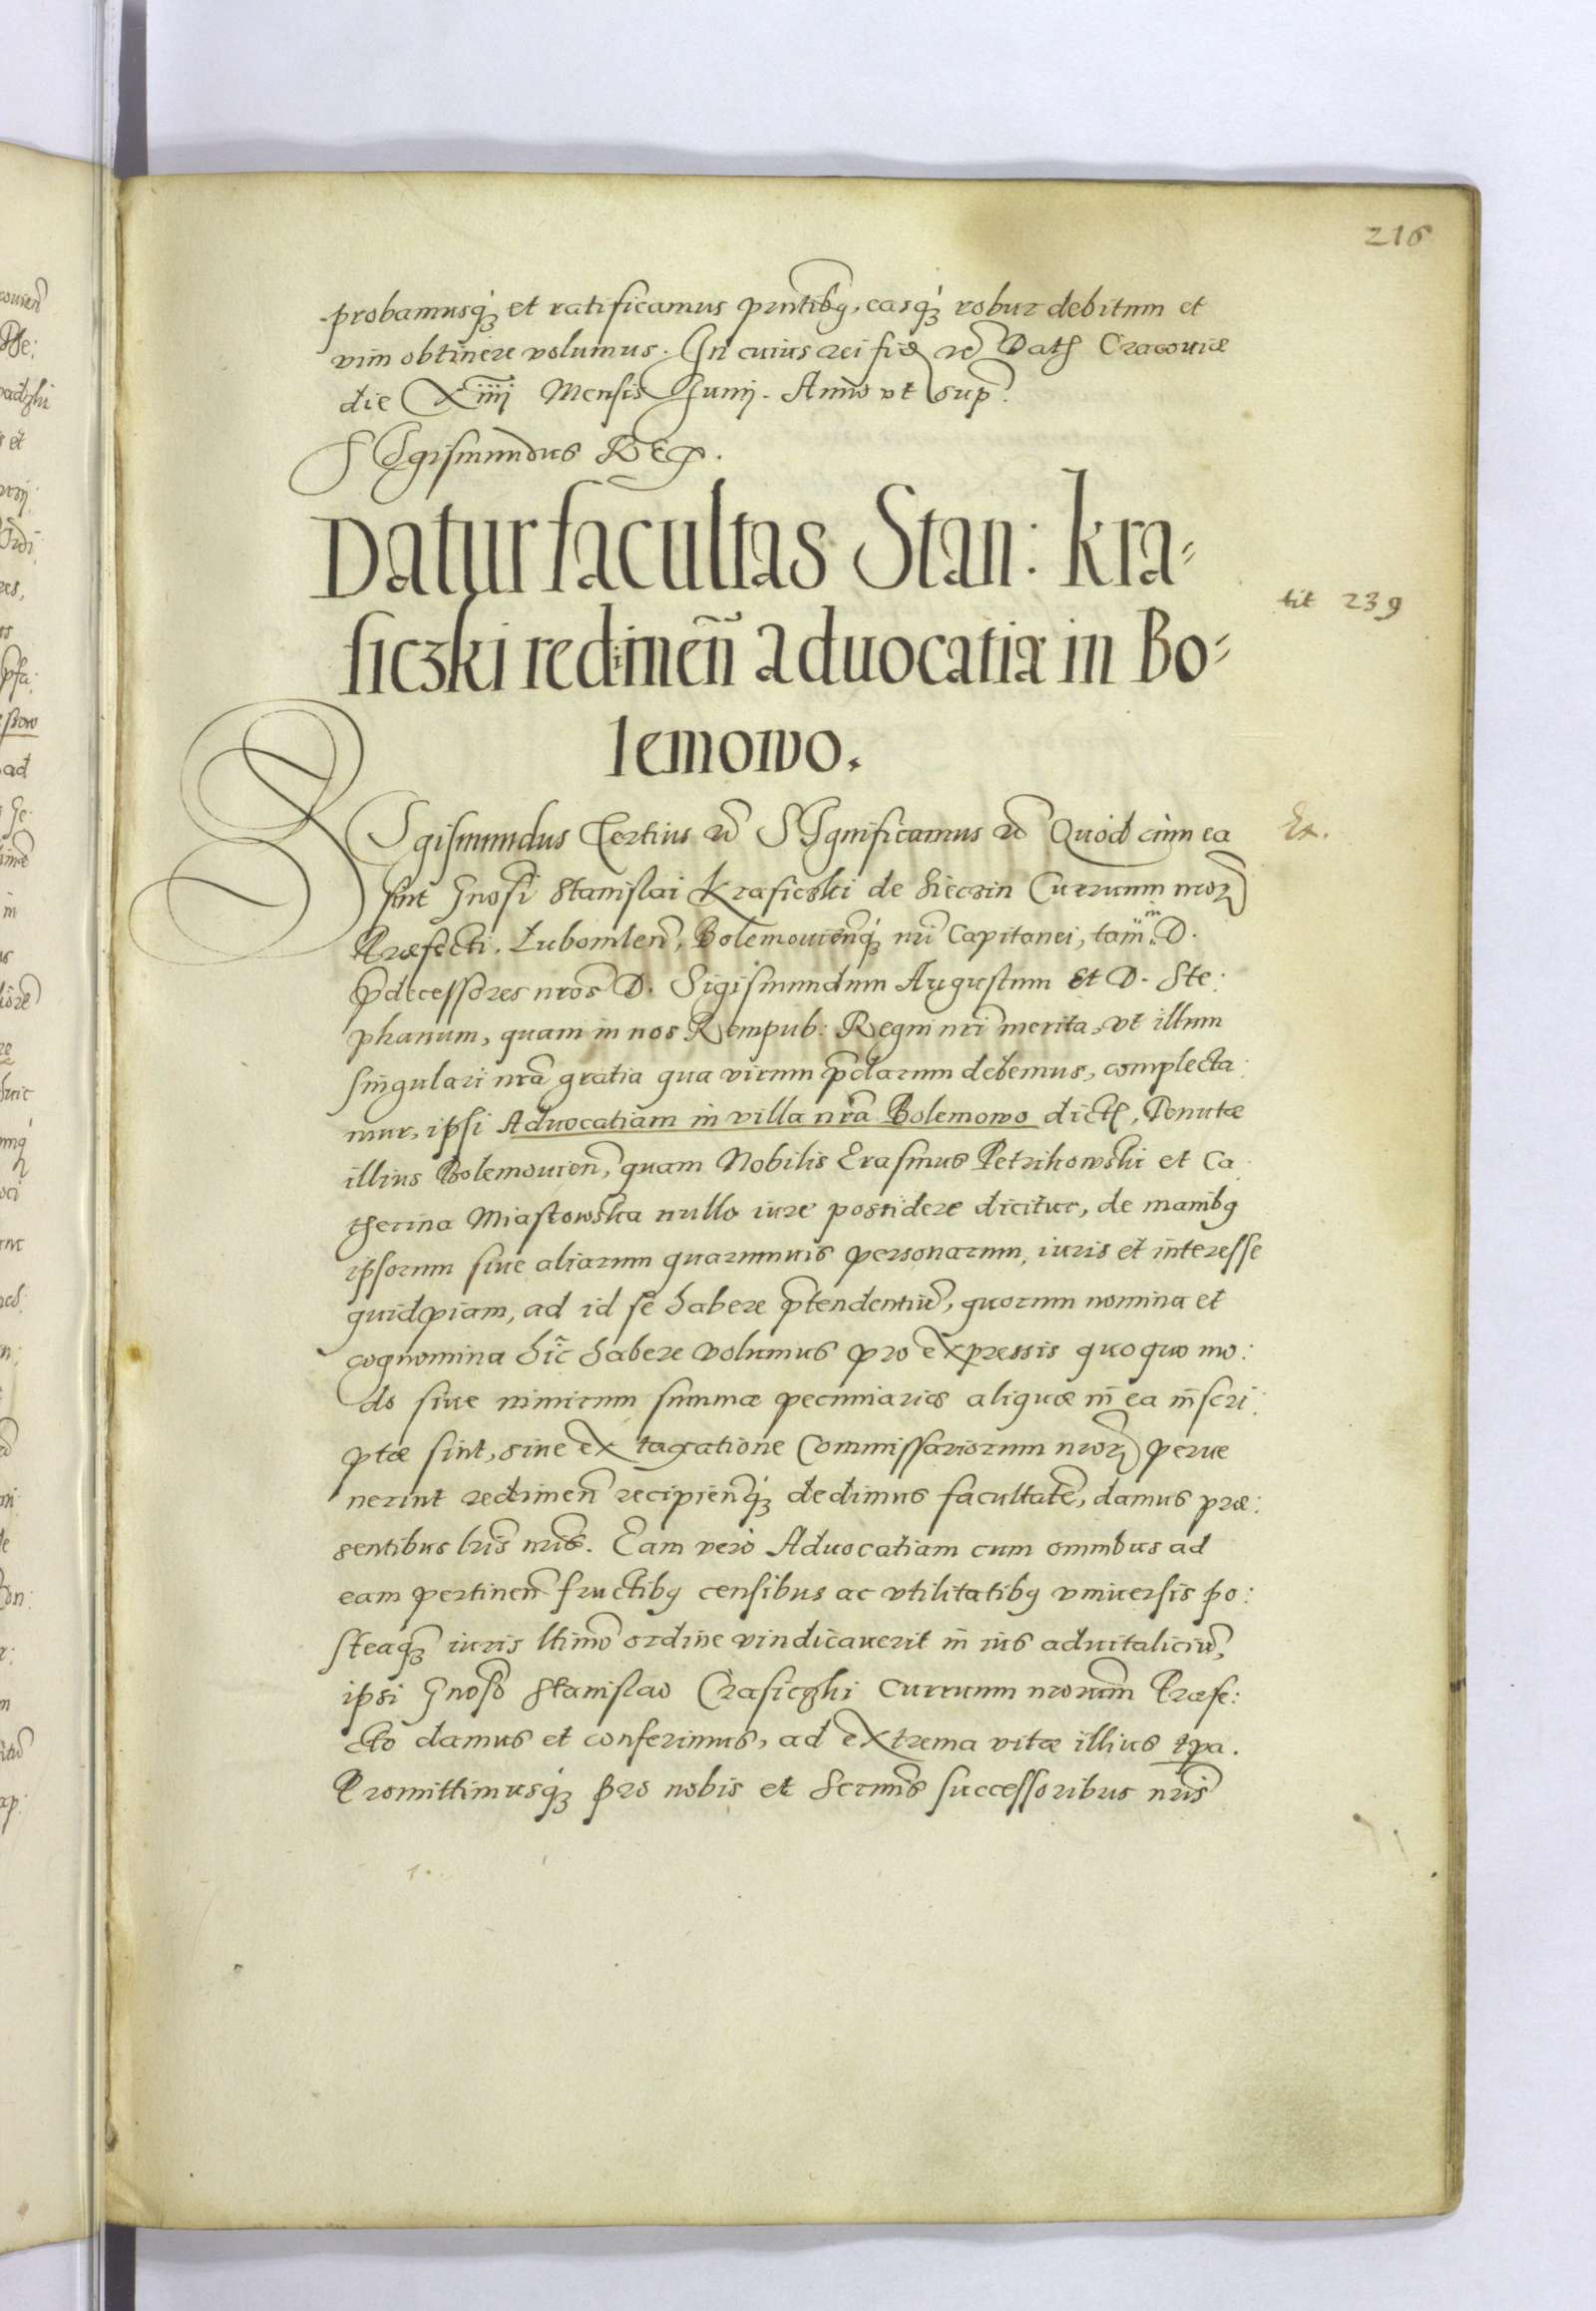 216
probamusq́ꝫ et ratificamus pñtibꝫ, easq́ꝫ robur debitum et
vim obtinere volumus. In cuius rei fid rc̃ Datꝭ Cracouiæ
die Xiiij Mensis Junij. Anno vt sup̃.
SIgismundus Rex.
Datur facultas Stan: kra⸗
siczki redimeñ aduocatiã in Bo⸗
lemowo.
tit 239
SIgismundus Tertius rc̃ SIgnificamus rc̃ Quòd cùm ea
Ex.
sint Gnosi Stanislai Krasiczki de Sieczin Curruum nroꝝ
Præfecti, Lubomleñ, Bolemouieñq́ꝫ nrĩ Capitanei, tam in D.
p̃decessores nros D. Sigismundum Augustum et D. Ste:
phanum, quam in nos Rempub: Regni nri merita, vt illum
singulari nrã gratia qua virum p̃clarum debemus, complecta:
mur, ipsi Aduocatiam in villa nrã Bolemowo dictꝭ, Tenutæ
illius Bolemouieñ, quam Nobilis Erasmus Petrikowski et Ca
therina Miastowska nullo iure possidere dicitur, de manibꝫ
ipsorum siue aliarum quarumuis personarum, iuris et interesse
quidpiam, ad id se habere p̃tendentiũ, quorum nomina et
cognomina hĩc habere volumus pro expressis quoquo mo:
do siue nimirum summæ pecuniariæ aliquæ in ea inscri:
ptæ sint, siue ex taxatione Commissariorum nroꝝ perue
nerint redimeñ recipieñq́ꝫ dedimus facultatẽ, damus præ:
sentibus lrĩs nrĩs. Eam verò Aduocatiam cum omnibus ad
eam pertineñ fructibꝫ censibus ac vtilitatibꝫ vniuersis po:
steaq̃ꝫ iuris ltimo ordine vindicauerit in ius aduitaliciũ,
ipsi Gnoso Stanislao Crasiczki Curruum nrorum Præfe:
cto damus et conferimus, ad extrema vitæ illius tpa.
Promittimusq́ꝫ pro nobis et Sermis successoribus nrĩs